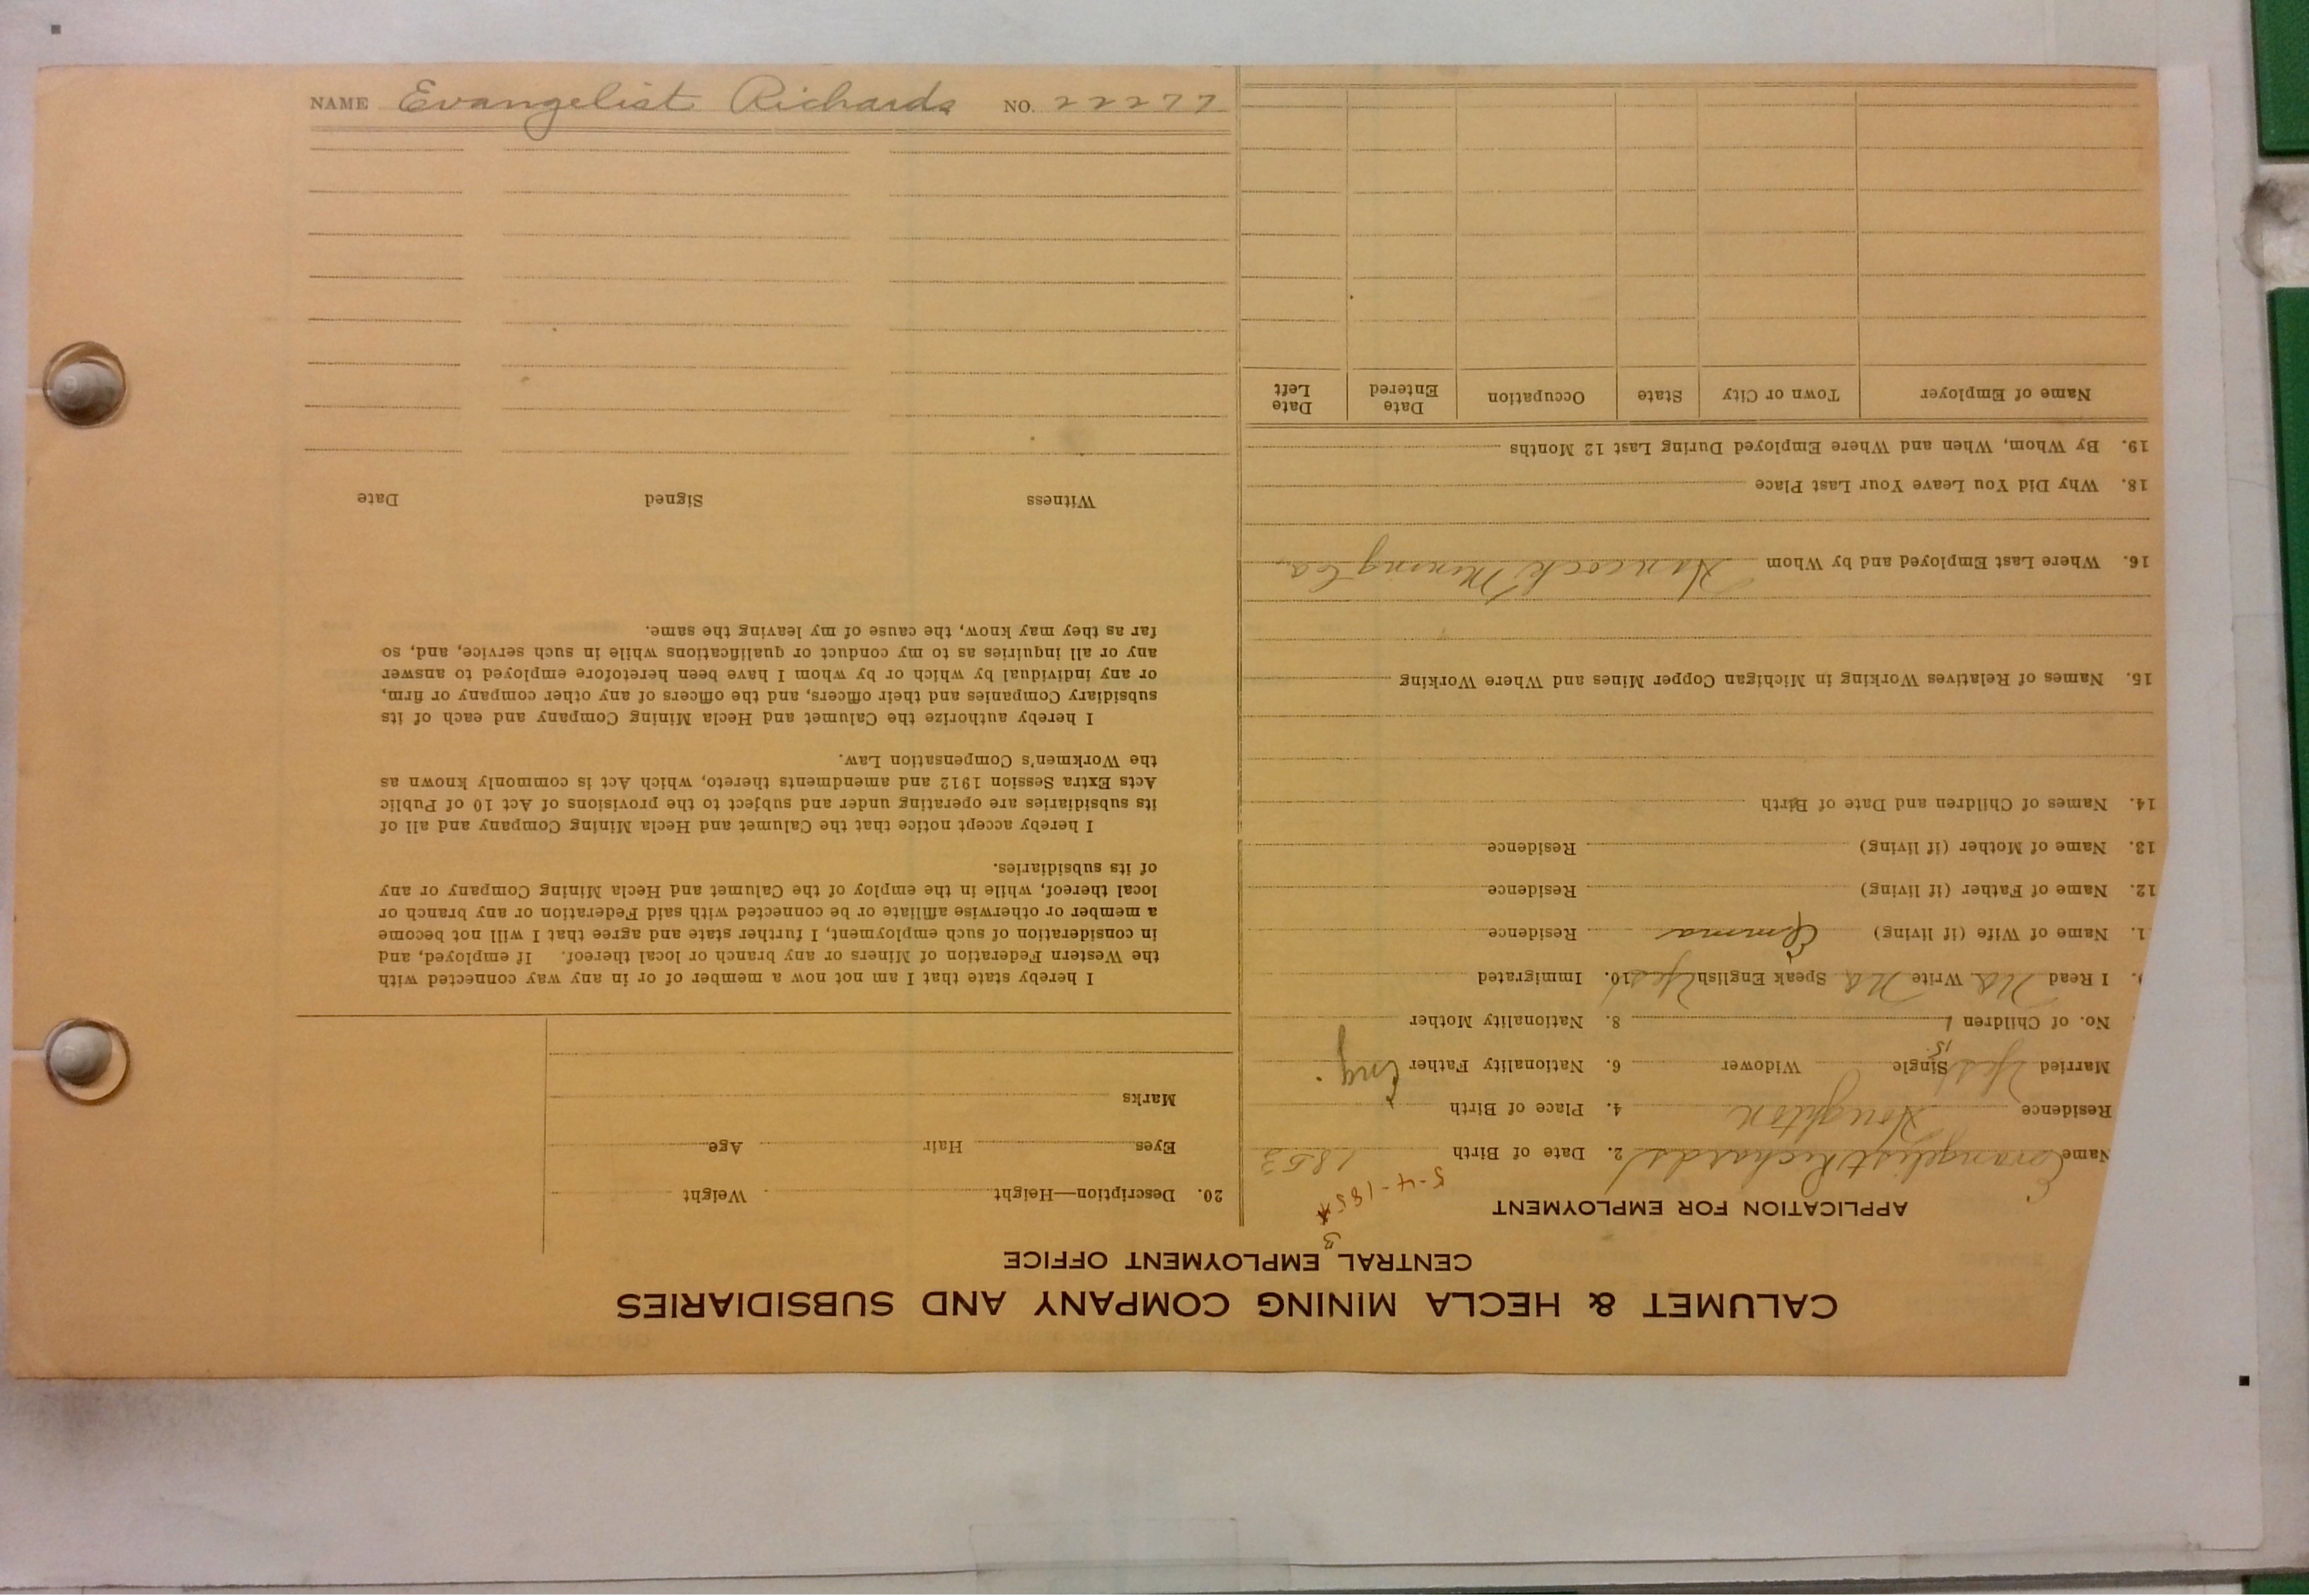 NAME Evangelist Richards NO. 22277
CALUMET & HECLA MINING COMPANY AND SUBSIDIARIES
CENTRAL EMPLOYMENT OFFICE
APPLICATION FOR EMPLOYMENT
5-4-185
3
Name Evangelist Richards 2. Date of Birth 1853
Residence Houghton 4. Place of Birth
Married Yes Single Widower 6. Nationality Father Eng.
15
No. of Children 1 8. Nationality Mother
I Read No Write No Speak English Yes 10. Immigrated
1. Name of Wife (if living) Emma Residence
12. Name of Father (if living) Residence
13. Name of Mother (if living) Residence
14. Names of Children and Date of Birth
15. Names of Relatives Working in Michigan Copper Mines and Where Working
16. Where Last Employed and by Whom Hancock Mining Co.
18. Why Did You Leave Your Last Place
19. By Whom, When and Where Employed During Last 12 Months
Name of Employer Town or City State Occupation Date Entered Date Left
20. Description—Height Weight
Eyes Hair Age
Marks
I hereby state that I am not now a member of or in any way connected with
the Western Federation of Miners or any branch or local thereof. If employed, and
in consideration of such employment, I further state and agree that I will not become
a member or otherwise affiliate or be connected with said Federation or any branch or
local thereof, while in the employ of the Calumet and Hecla Mining Company or any
of its subsidiaries.
I hereby accept notice that the Calumet and Hecla Mining Company and all of
its subsidiaries are operating under and subject to the provisions of Act 10 of Public
Acts Extra Session 1912 and amendments thereto, which Act is commonly known as
the Workmen's Compensation Law.
I hereby authorize the Calumet and Hecla Mining Company and each of its
subsidiary Companies and their officers, and the officers of any other company or firm,
or any individual by which or by whom I have been heretofore employed to answer
any or all inquiries as to my conduct or qualifications while in such service, and, so
far as they may know, the cause of my leaving the same.
Witness Signed Date